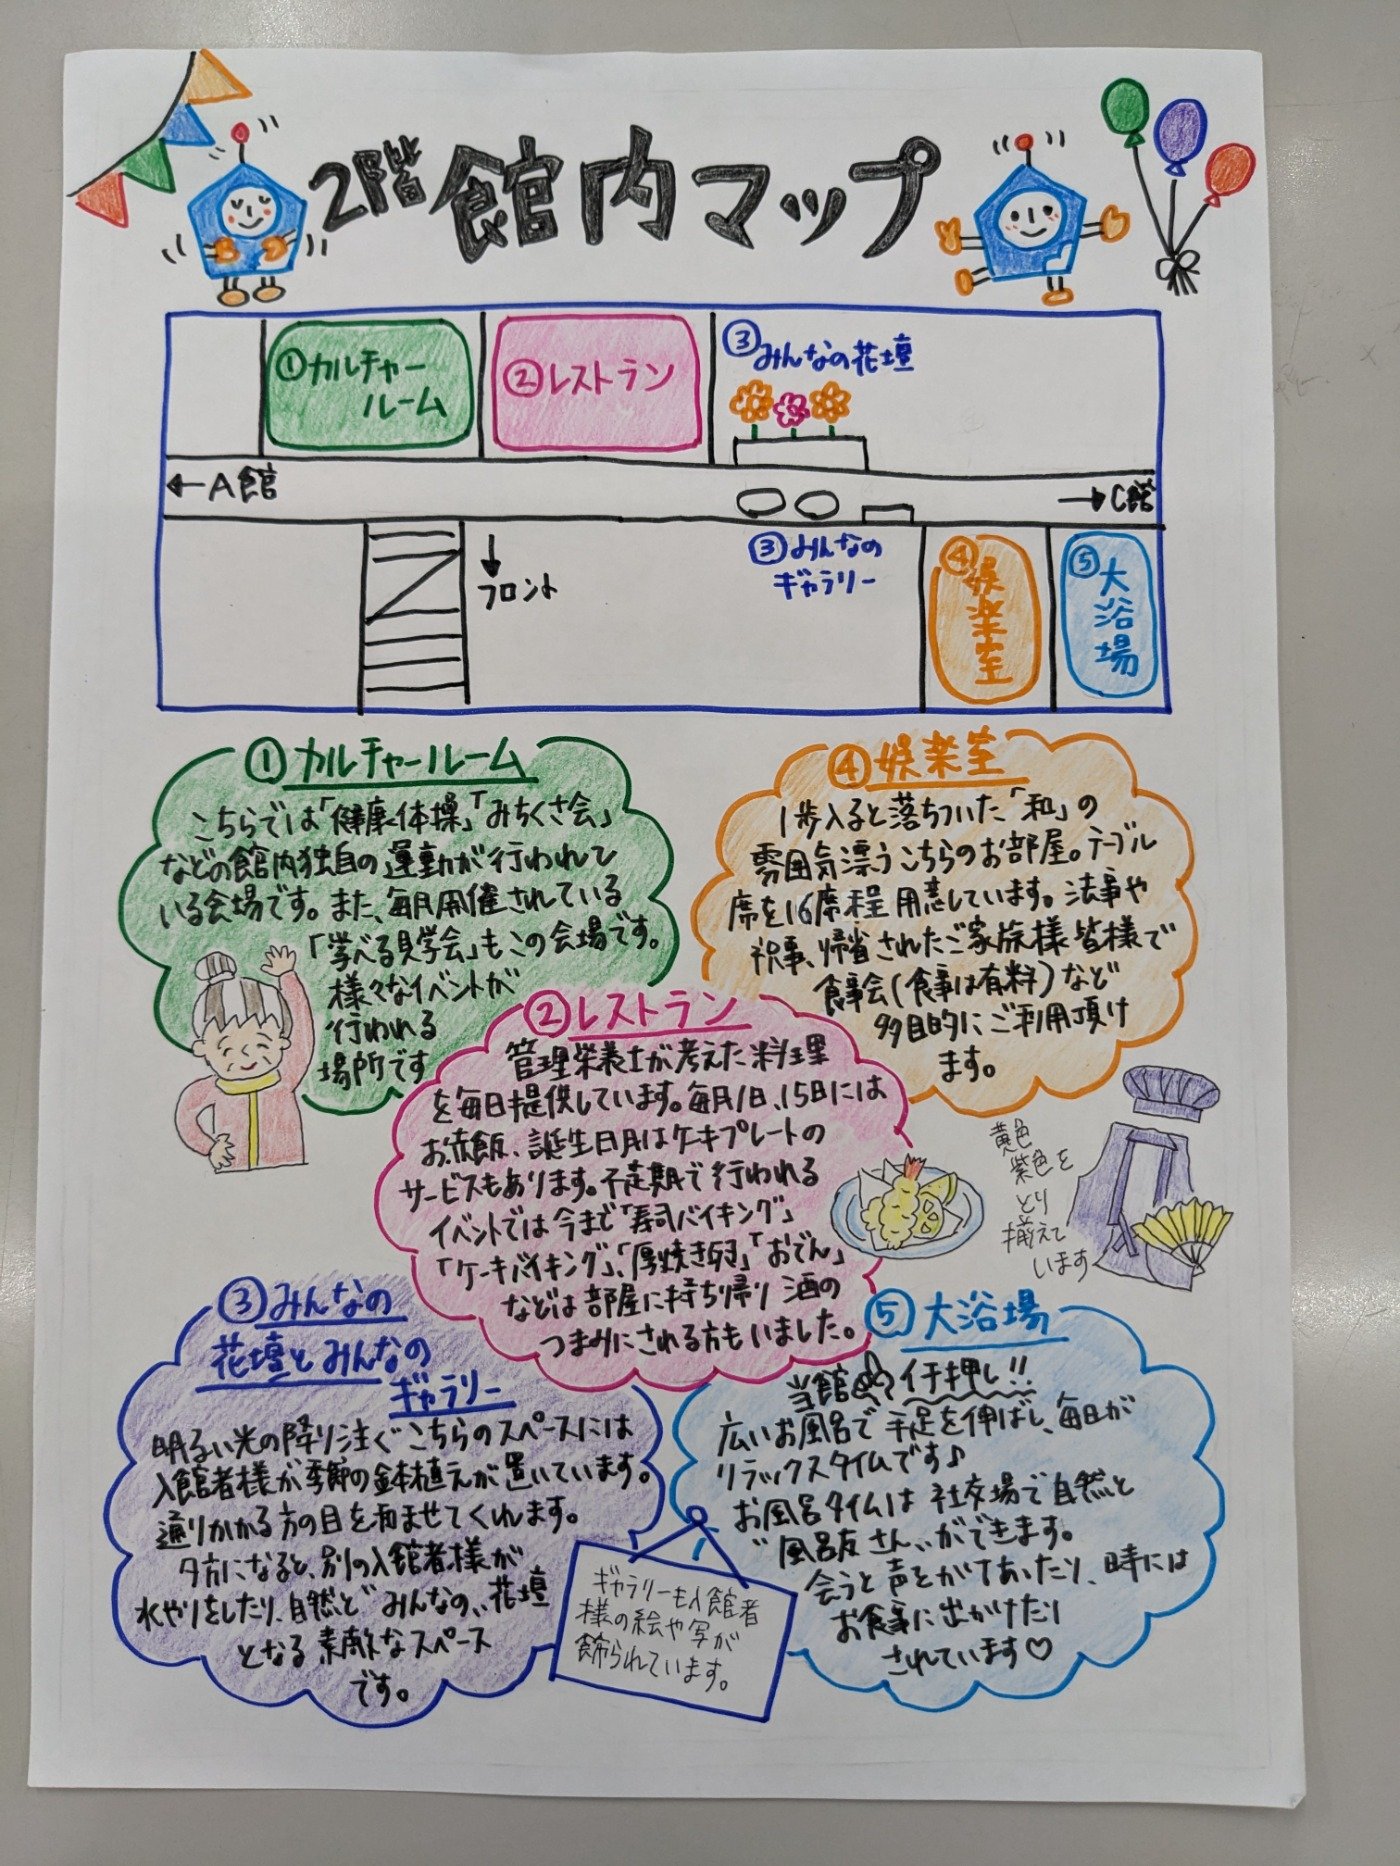 2階館内マップ
①カルチャー
ルーム
②レストラン
③みんなの花壇
←A館
→C館
↓フロント
③みんなの
ギャラリー
④娯楽室
⑤大浴場
①カルチャールーム
こちらでは「健康体操」「みちくさ会」
などの館内独自の運動が行われて
いる会場です。また、毎月開催されている
「学べる見学会」もこの会場です。
様々なイベントが
行われる
場所です
④娯楽室
1歩入ると落ちついた「和」の
雰囲気漂うこちらのお部屋。テーブル
席を16席程用意しています。法事や
祝事、帰省されたご家族様皆様で
食事会(食事は有料)など
多目的にご利用頂け
ます。
黄色
紫色を
とり
揃えて
います
②レストラン
管理栄養士が考えた料理
を毎日提供しています。毎月1日、15日には
お赤飯、誕生日月はケーキプレートの
サービスもあります。不定期で行われる
イベントでは今まで「寿司バイキング」
「ケーキバイキング」、「厚焼き卵」「おでん」
などは部屋に持ち帰り酒の
つまみにされる方もいました。
③みんなの
花壇とみんなの
ギャラリー
明るい光の降り注ぐこちらのスペースには
入館者様が季節の鉢植えが置いています。
通りかかる方の目を和ませてくれます。
夕方になると、別の入館者様が
水やりをしたり、自然と〝みんなの〟花壇
となる素敵なスペース
です。
ギャラリーも入館者
様の絵や写が
飾られています。
⑤大浴場
当館イチ押し!!
広いお風呂で手足を伸ばし、毎日が
リラックスタイムです♪
お風呂タイムは社交場で自然と
〝風呂友さん〟ができます。
会うと声をかてあったり、時には
お食事に出かけたり
されています♡